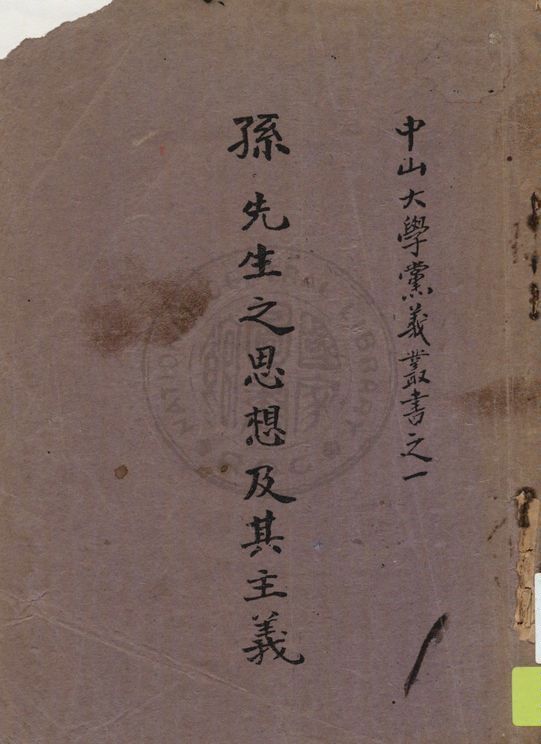 中山大學黨義叢書之一
孫先生之思想及其主義